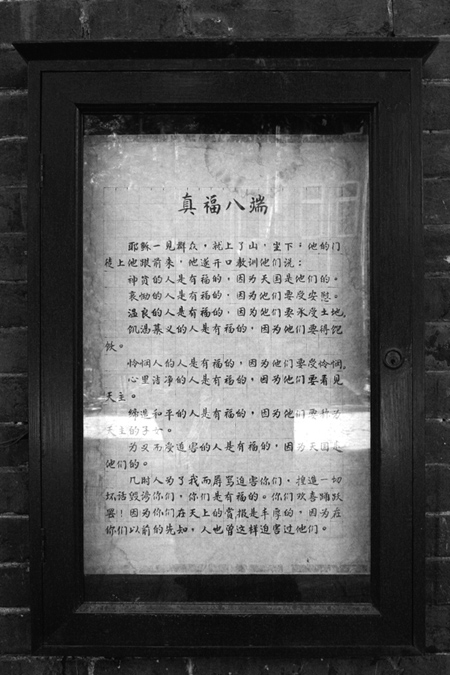 真福八端
耶稣一见群众，就上了山，坐下；他的门
徒上他跟前来，他遂开口教训他们说：
神贫的人是有福的，因为天国是他们的。
哀恸的人是有福的，因为他们要受安慰。
温良的人是有福的，因为他们要承受土地。
饥渴慕义的人是有福的，因为他们要得饱
饮。
怜悯人的人是有福的，因为他们要受怜悯。
心里洁净的人是有福的，因为他们要看见
天主。
缔造和平的人是有福的，因为他们要称为
天主的子女。
为义而受迫害的人是有福的，因为天国是
他们的。
几时人为了我而辱骂迫害你们，捏造一切
坏话毁谤你们，你们是有福的。你们欢喜踊跃
罢！因为你们在天上的赏报是丰厚的，因为在
你们以前的先知，人也曾这样迫害过他们。